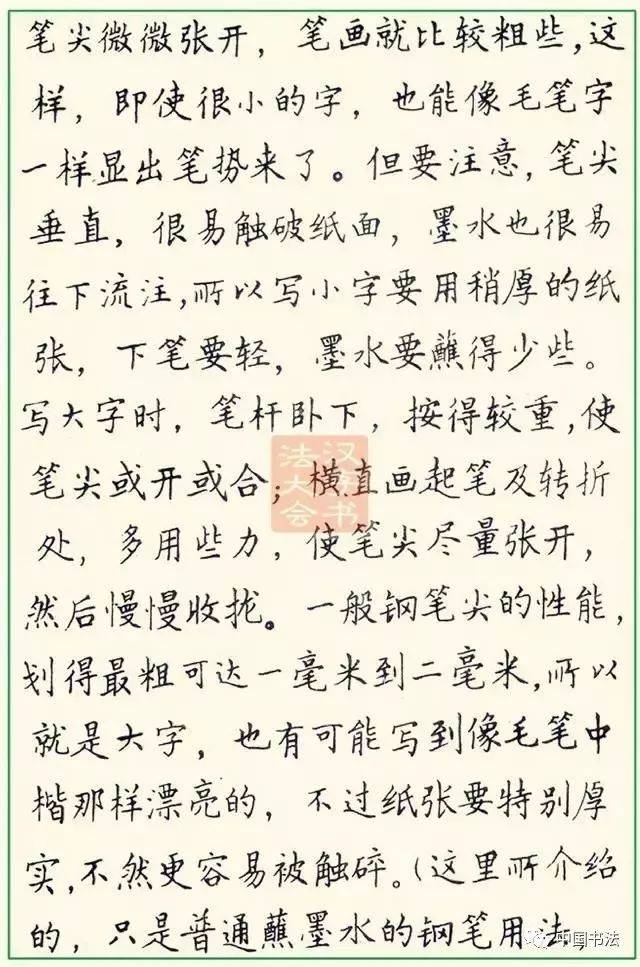 笔尖微微张开，笔画就比较粗些，这
样，即使很小的字，也能像毛笔字
一样显出笔势来了。但要注意，笔尖
垂直，很易触破纸面，墨水也很易
往下流注，所以写小字要用稍厚的纸
张，下笔要轻，墨水要蘸得少些。
写大字时，笔杆卧下，按得较重，使
笔尖或开或合；横直画起笔及转折
处，多用些力，使笔尖尽量张开，
然后慢慢收拢。一般钢笔尖的性能，
划得最粗可达一毫米到二毫米，所以
就是大字，也有可能写到像毛笔中
楷那样漂亮的，不过纸张要特别厚
实，不然更容易被触碎。（这里所介绍
的，只是普通蘸墨水的钢笔用法，
汉字书法大会
中国书法